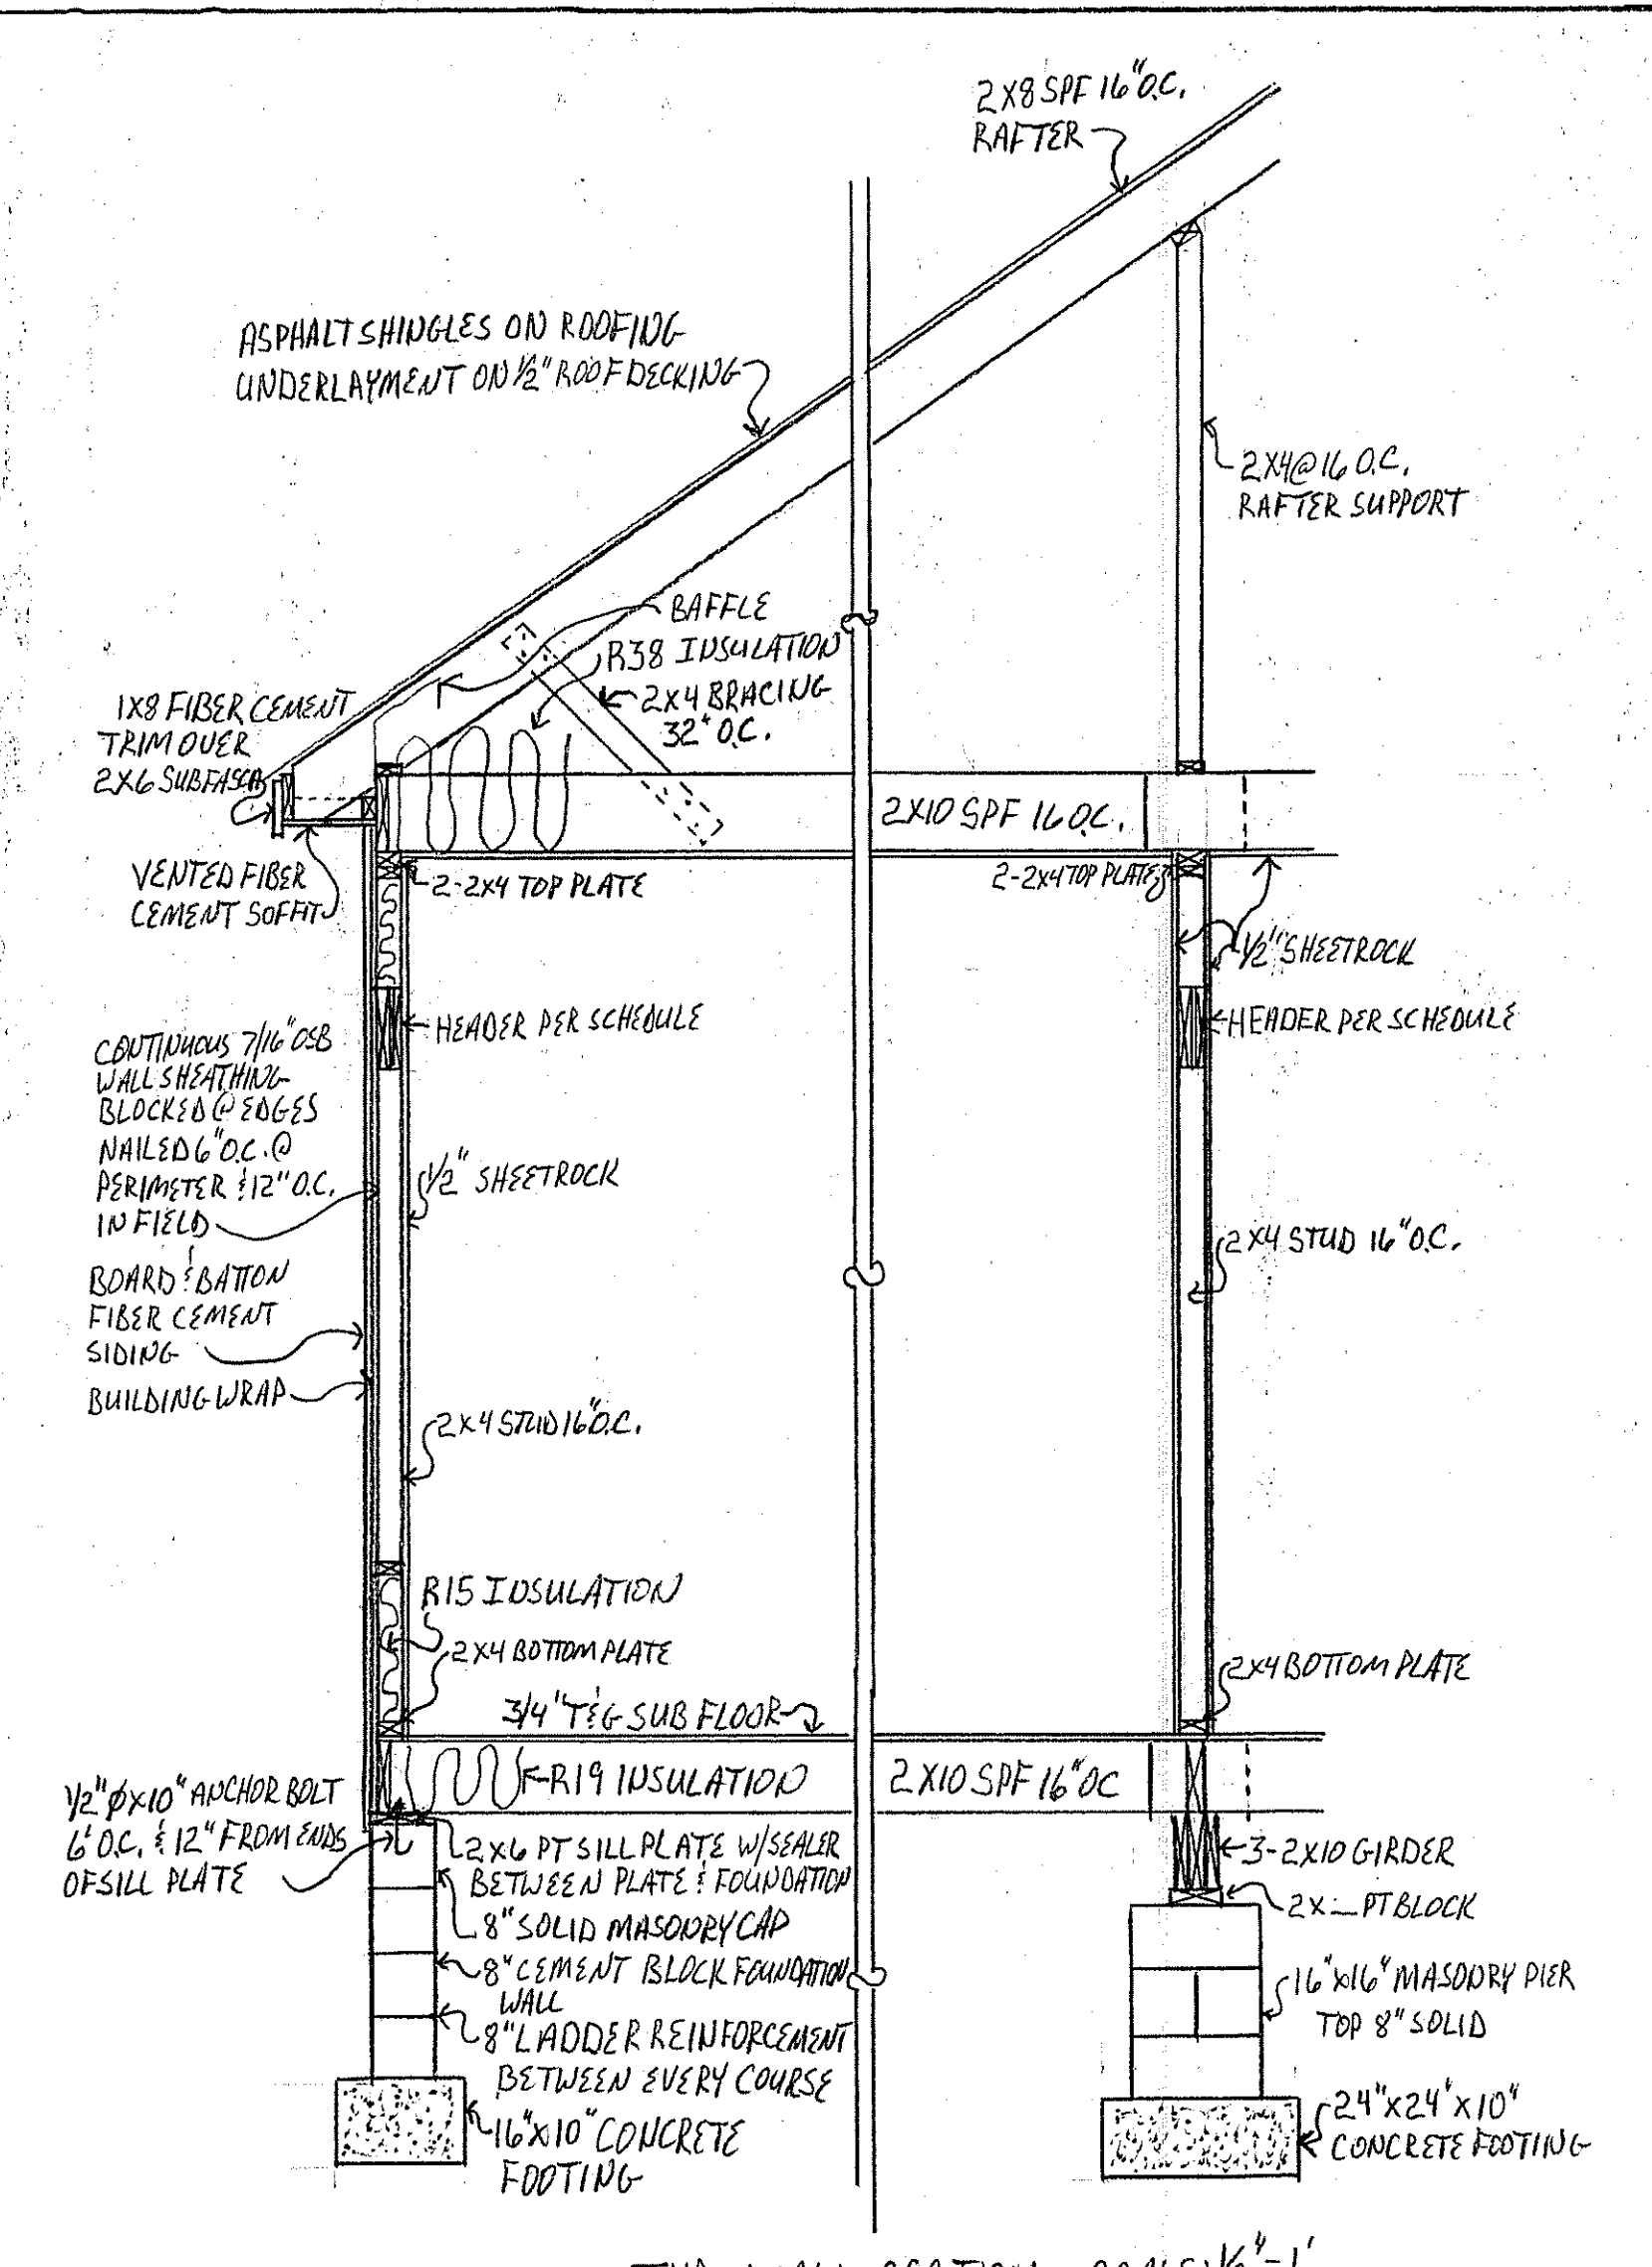 2X8 SPF 16" O.C.
RAFTER
ASPHALT SHINGLES ON ROOFING
UNDERLAYMENT ON 1/2" ROOF DECKING
2X4@16 O.C.
RAFTER SUPPORT
BAFFLE
R38 INSULATION
2X4 BRACING
32" O.C.
1X8 FIBER CEMENT
TRIM OVER
2X6 SUBFASCIA
2X10 SPF 16 O.C.
VENTED FIBER
CEMENT SOFFIT
2-2X4 TOP PLATE
2-2X4 TOP PLATE
1/2" SHEETROCK
HEADER PER SCHEDULE
HEADER PER SCHEDULE
CONTINUOUS 7/16" OSB
WALL SHEATHING
BLOCKED @ EDGES
NAILED 6" O.C. @
PERIMETER & 12" O.C.
IN FIELD
1/2" SHEETROCK
2X4 STUD 16" O.C.
BOARD & BATTON
FIBER CEMENT
SIDING
BUILDING WRAP
2X4 STUD 16" O.C.
R15 INSULATION
2X4 BOTTOM PLATE
2X4 BOTTOM PLATE
3/4" T&G SUB FLOOR
R19 INSULATION
2X10 SPF 16" OC
1/2" Ø X 10" ANCHOR BOLT
6' O.C. & 12" FROM ENDS
OF SILL PLATE
2X6 PT SILL PLATE W/SEALER
BETWEEN PLATE & FOUNDATION
8" SOLID MASONRY CAP
8" CEMENT BLOCK FOUNDATION
WALL
8" LADDER REINFORCEMENT
BETWEEN EVERY COURSE
16"X10" CONCRETE
FOOTING
3-2X10 GIRDER
2X_ PT BLOCK
16"X16" MASONRY PIER
TOP 8" SOLID
24"X24"X10"
CONCRETE FOOTING